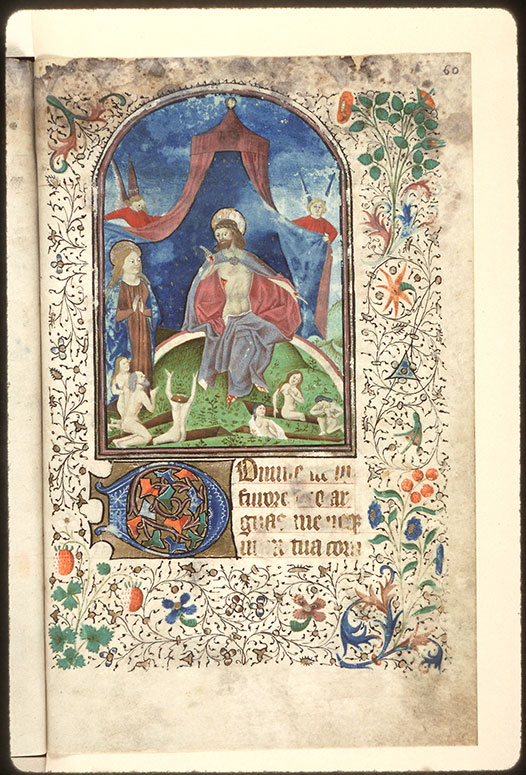 60
Domine ne in
furore tuo ar
guas me neqz
in ira tua corri